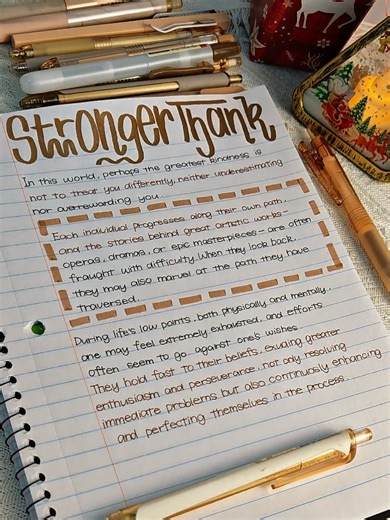 Stronger Thank
In this world, perhaps the greatest kindness is
not to treat you differently, neither underestimating
nor overrewarding you.
Each individual progresses along their own path,
and the stories behind great artistic works-
operas, dramas, or epic masterpieces - are often
fraught with difficulty. When they look back,
they may also marvel at the path they have
traversed.
During life's low points, both physically and mentally,
one may feel extremely exhausted, and efforts
often seem to go against one's wishes.
They hold fast to their beliefs, exuding greater
enthusiasm and perseverance, not only resolving
immediate problems but also continuously enhancing
and perfecting themselves in the process